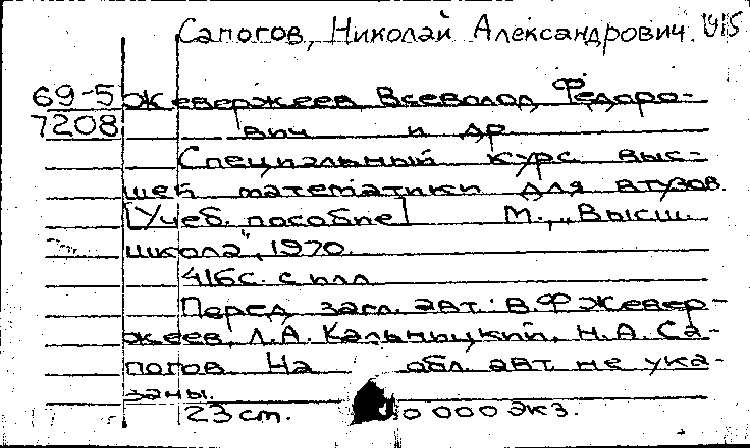 Сапогов, Николай Александрович. 1915
69-5 Жевержеев, Всеволод Федоро-
7208 вич и др.
Специальный курс выс-
шей математики для втузов.
[Учеб. пособие] М., „Высш.
школа“, 1970.
416с. с илл.
Перед загл. авт.: В.Ф Жевер-
жеев, Л.А. Кальницкий, Н.А. Са-
погов. На обл. авт. не ука-
заны.
23 см. 0 000 экз.